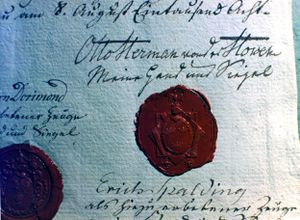 am 8. August Eintausend Acht-
Otto Herman von der Howen
Meine Hand und Siegel
Dorimond
erbetener Zeuge
und Siegel
Erich Spalding
als hiezu erbetener Zeuge